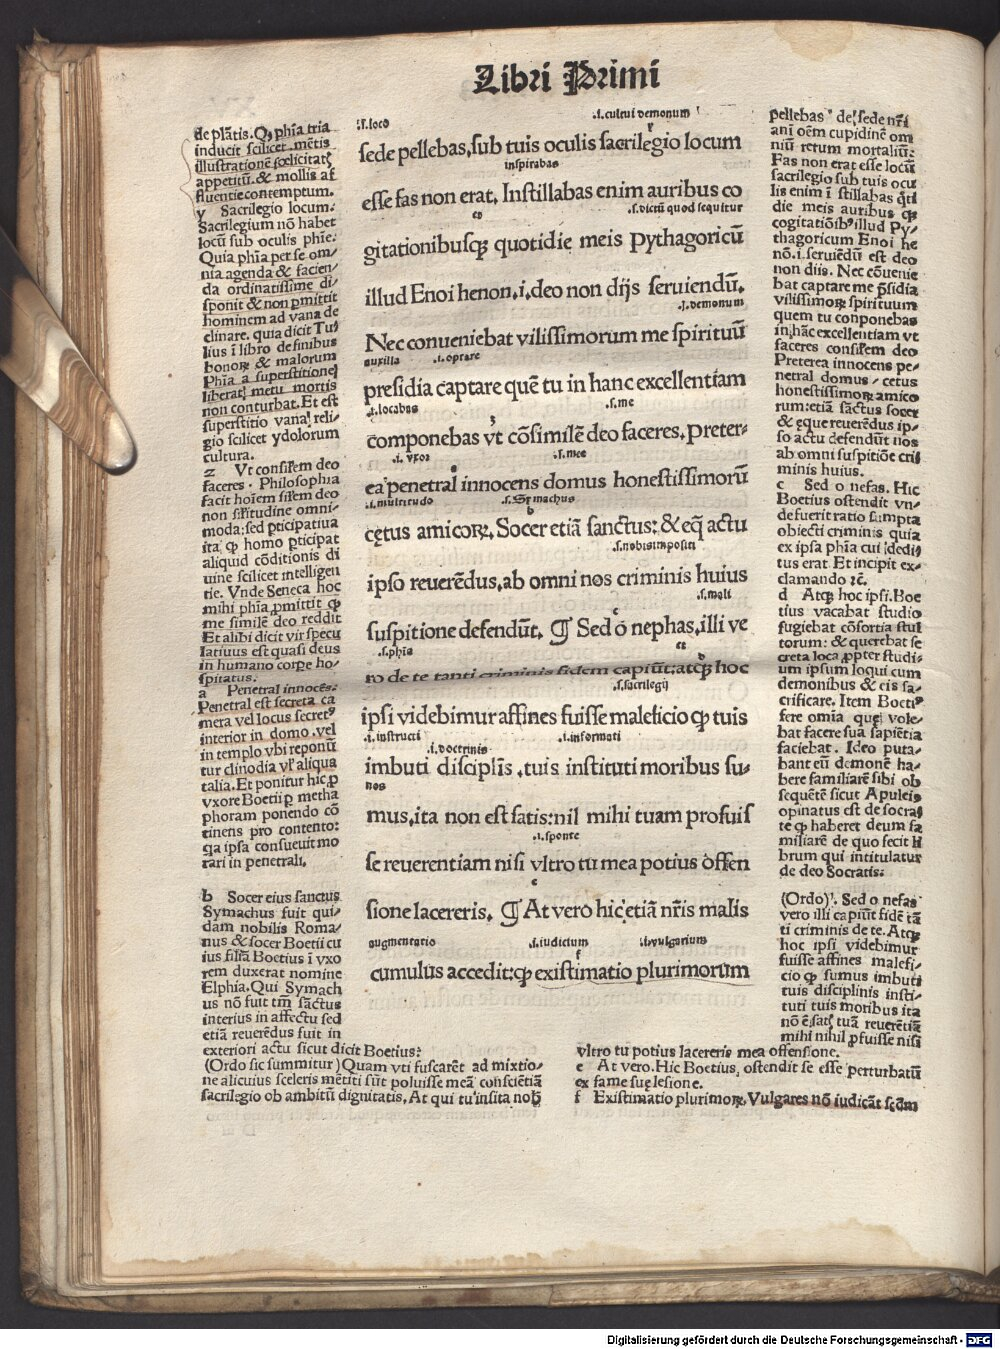 Libri Primi
de plãtis. Q₂ phĩa tria
inducit scilicet mẽtis
illustrationẽ fœlicitatꝭ
appetitũ. & mollis af
fluentie contemptum.
y Sacrilegio locum:
Sacrilegium nõ habet
locũ sub oculis phĩe:
Quia phĩa per se om-
nia agenda & facien/
da ordinatissime di/
sponit & non ꝑmittit
hominem ad vana de
clinare. quia dicit Tul
lius ĩ libro definibus
bonoꝝ & malorum
Phĩa a superstitione
liberat metu mortis
non conturbat. Et est
superstitio vana reli/
gio scilicet ydolorum
cultura.
z Vt consiľem deo
faceres. Philosophia
facit hoĩem siľem deo
non siľitudine omni/
moda: sed ꝑticipatiua
ita ꝙ homo ꝑticipat
aliquid cõditionis di
uine scilicet intelligen
tie. Vnde Seneca hoc
mihi phĩa ꝓmittit ꝙ
me similẽ deo reddit
Et alibi dicit vir specu
latiuus est quasi deus
in humano corꝑe ho/
spitatus.
a Penetral innocẽs:
Penetral est secreta ca
mera vel locus secretꝰ
interior in domo. vel
in templo vbi reponũ
tur clinodia vľ aliqua
talia. Et ponitur hic ꝓ
vxore Boetii ꝑ metha
phoram ponendo cõ
tinens pro contento:
qa ipsa consueuit mo
rari in penetrali.
b Socer eius sanctus
Symachus fuit qui/
dam nobilis Roma/
nus & socer Boetii cu
ius filiã Boetius ĩ vxo
rem duxerat nomine
Elphia. Qui Symach
us nõ fuit tm̃ sãctus
interius in affectu sed
etiã reuerẽdus fuit in
exteriori actu sicut dicit Boetius:
(Ordo sic summitur) Quam vti fuscarẽt ad mixtio/
ne alicuius sceleris mẽtiti sũt poluisse meã consciẽtiã
sacrilegio ob ambitũ dignitatis, At qui tu insita nob̃
.i. loco .i. cultui demonum
sede pellebas, sub tuis oculis sacrilegio locum
inspirabas
esse fas non erat. Instillabas enim auribus co
.s. dictũ quod sequitur
gitationibusqꝫ quotidie meis Pythagoricũ
illud Enoi henon. i. deo non dijs seruiendũ.
.i. demonum
Nec conueniebat vilissimorum me spirituũ
auxilia .i. optare
presidia captare quẽ tu in hanc excellentiam
.i. locabas .s. me
componebas vt cõsimilẽ deo faceres. Preter/
.i. vxor .s. mee
ea penetral innocens domus honestissimorũ
.i. multitudo .s. Symachus
cętus amicoꝝ. Socer etiã sanctus: & eqꝫ actu
.s. nobis impositi
ipso reuerẽdus, ab omni nos criminis huius
.s. mali
suspitione defendũt. ¶ Sed õ nephas, illi ve
.s. phĩa et
ro de te tanti criminis fidem capiũt: atqꝫ hoc
.s. sacrilegij
ipsi videbimur affines fuisse maleficio ꝙ tuis
.i. instructi .i. doctrinis .i. informati
imbuti disciplĩs , tuis instituti moribus su/
nos
mus, ita non est satis: nil mihi tuam profuis
.i. sponte
se reuerentiam nisi vltro tu mea potius offen
sione lacereris. ¶ At vero hic etiã nr̃is malis
augmentatio .i. iudicium .i. vulgarium
cumulus accedit: ꝙ existimatio plurimorum
pellebas de sede nr̃i
ani oẽm cupidinẽ om
niũ rerum mortaliũ:
Fas non erat esse locũ
sacrilegio sub tuis ocu
lis enim ĩ stillabas q̃ti
die meis auribus qꝫ
cogitatiõibꝰ illud Py/
thagoricum Enoi he
nõ. i. seruiẽdũ est deo
non diis. Nec cõuenie
bat captare me p̃sidia
vilissimoꝝ spirituum
quem tu conponebas
in hãc excellentiam vt
faceres consiľem deo
Preterea innocens pe/
netral domus / cetus
honestissimoꝝ amico
rum: etiã sãctus socer
& ęque reuerẽdus ip/
so actu defendũt nos
ab omni suspitiõe cri
minis huius.
c Sed o nefas. Hic
Boetius ostendit vn/
de fuerit ratio sumpta
obiecti criminis quia
ex ipsa phĩa cui dedi
tus erat. Et incipit ex/
clamando ⁊c.
d Atqꝫ hoc ipsi. Boe
tius vacabat studio
fugiebat cõsortia stul
torum: & querebat se
creta loca ꝓpter studi/
um ipsum loqui cum
demonibus & eis sa/
crificare. Item Boetiꝰ
fere omĩa queꝭ vole/
bat facere sua sapiẽtia
faciebat. Ideo puta/
bant eũ demonẽ ha/
bere familiarẽ sibi ob
sequẽtẽ sicut Apuleis
opinatus est de socra/
te ꝙ haberet deum fa
miliarẽ de quo fecit li
brum qui intitulatur
de deo Socratis:
(Ordo). Sed o nefas
vero illi capiũt fidẽ tã
ti criminis de te. Atqꝫ
hoc ipsi videbimur
fuisse affines malefi/
cio ꝙ sumus imbuti
tuis disciplinis insti/
tuti tuis moribus ita
nõ ẽ satꝭ tuã reuerẽtiã
mihi nihil ꝓfuisse nisi
vltro tu potius lacereris mea offensione.
e At vero. Hic Boetius, ostendit se esse perturbatũ
ex fame suę lesione.
f Existimatio plurimoꝝ. Vulgares nõ iudicãt scðm
Digitalisierung gefördert durch die Deutsche Forschungsgemeinschaft - DFG